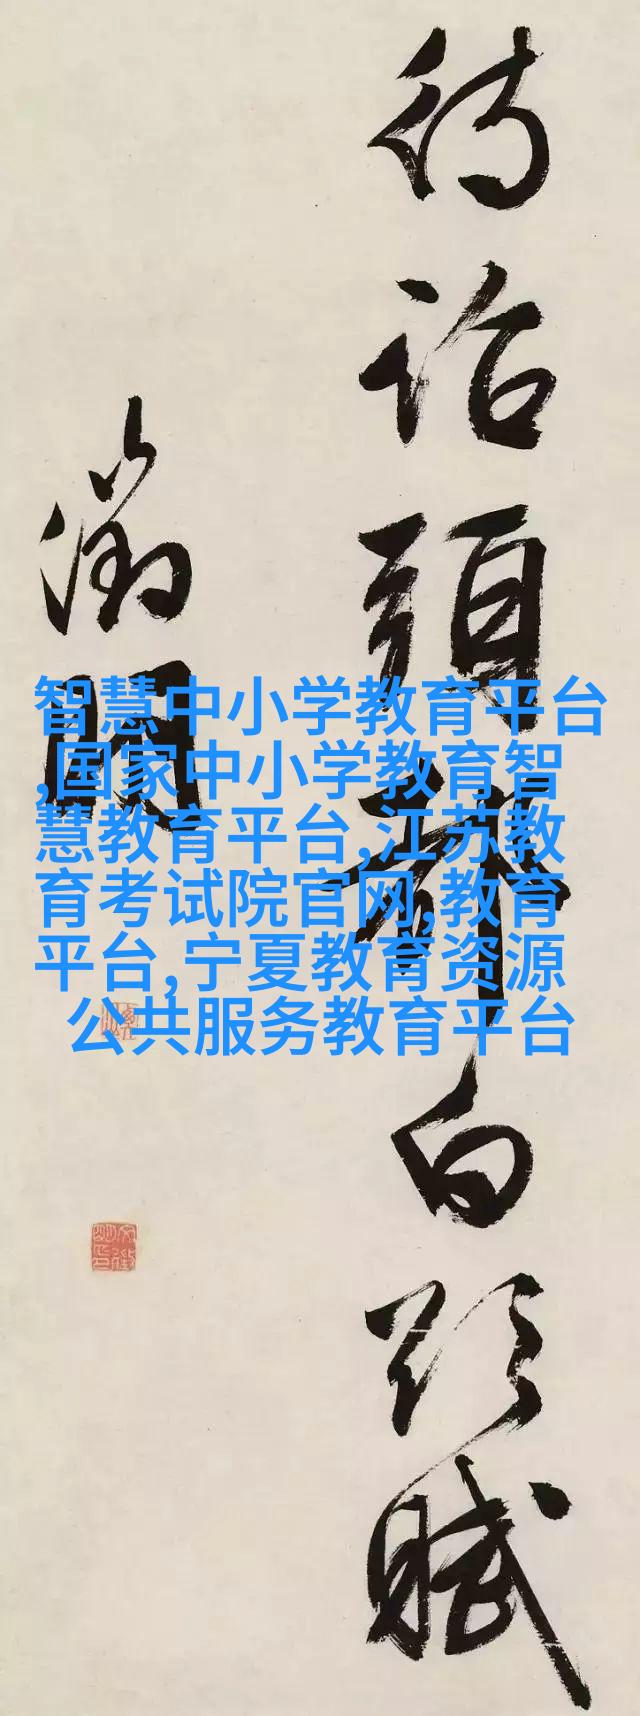 待詔頭都白賦
徵明
智慧中小学教育平台
,国家中小学教育智
慧教育平台,江苏教
育考试院官网,教育
平台,宁夏教育资源
公共服务教育平台